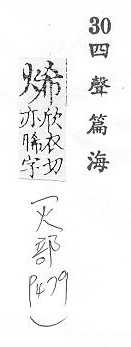 30四聲篇海
烯欣衣切
亦睎字
(火部
P479)